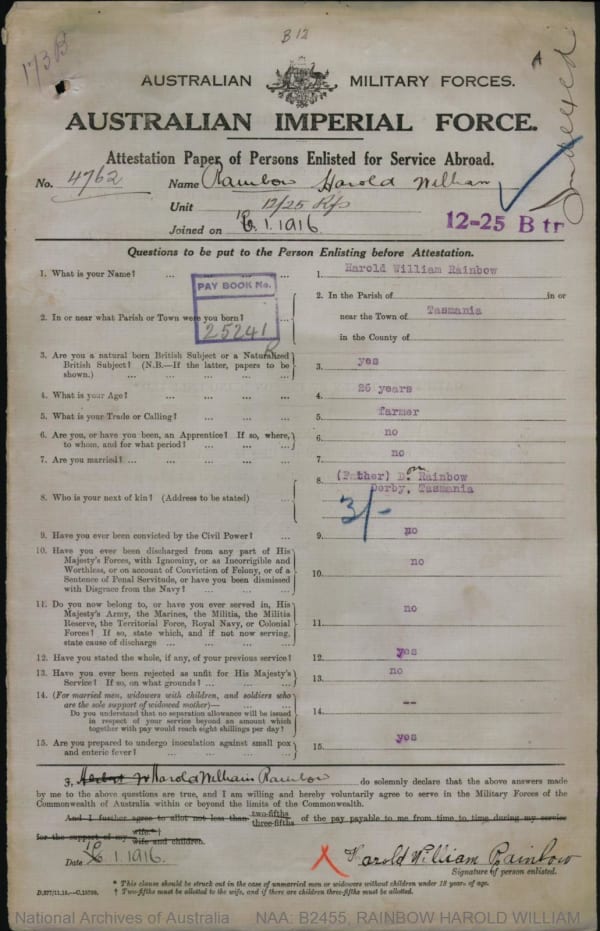 173B
B 12
Indexed
AUSTRALIAN MILITARY FORCES.
AUSTRALIAN IMPERIAL FORCE.
Attestation Paper of Persons Enlisted for Service Abroad.
No. 4762 Name Rainbow Harold William
Unit 12/25 Rfs
Joined on 1. 1916
12-25 B tr
Questions to be put to the Person Enlisting before Attestation.
1. What is your Name? ... ... ... ... 1. Harold William Rainbow
PAY BOOK No.
25241
2. In or near what Parish or Town were you born? ... 2. In the Parish of in or
near the Town of Tasmania
in the County of
3. Are you a natural born British Subject or a Naturalized
British Subject? (N.B.—If the latter, papers to be
shown.) ... ... ... ... 3. yes
4. What is your Age? ... ... ... ... 4. 26 years
5. What is your Trade or Calling? ... ... ... 5. farmer
6. Are you, or have you been, an Apprentice? If so, where,
to whom, and for what period? ... ... ... 6. no
7. Are you married? ... ... ... ... 7. no
8. Who is your next of kin? (Address to be stated) ... 8. (Father) D. Rainbow
Derby, Tasmania
3/-
9. Have you ever been convicted by the Civil Power? ... 9. no
10. Have you ever been discharged from any part of His
Majesty's Forces, with Ignominy, or as Incorrigible and
Worthless, or on account of Conviction of Felony, or of a
Sentence of Penal Servitude, or have you been dismissed
with Disgrace from the Navy? ... ... ... 10. no
11. Do you now belong to, or have you ever served in, His
Majesty's Army, the Marines, the Militia, the Militia
Reserve, the Territorial Force, Royal Navy, or Colonial
Forces? If so, state which, and if not now serving,
state cause of discharge ... ... ... 11. no
12. Have you stated the whole, if any, of your previous service? 12. yes
13. Have you ever been rejected as unfit for His Majesty's
Service? If so, on what grounds? ... ... ... 13. no
14. (For married men, widowers with children, and soldiers who
are the sole support of widowed mother)—
Do you understand that no separation allowance will be issued
in respect of your service beyond an amount which
together with pay would reach eight shillings per day? 14. --
15. Are you prepared to undergo inoculation against small pox
and enteric fever? ... ... ... ... 15. yes
I, Herbert W Harold William Rainbow do solemnly declare that the above answers made
by me to the above questions are true, and I am willing and hereby voluntarily agree to serve in the Military Forces of the
Commonwealth of Australia within or beyond the limits of the Commonwealth.
And I further agree to allot not less than two-fifths
three-fifths of the pay payable to me from time to time during my service
for the support of my wife*†
wife and children.
Date 1. 1916. X Harold William Rainbow
Signature of person enlisted.
D.377/11.15.—C.15798.
* This clause should be struck out in the case of unmarried men or widowers without children under 18 years of age.
† Two-fifths must be allotted to the wife, and if there are children three-fifths must be allotted.
National Archives of Australia NAA: B2455, RAINBOW HAROLD WILLIAM